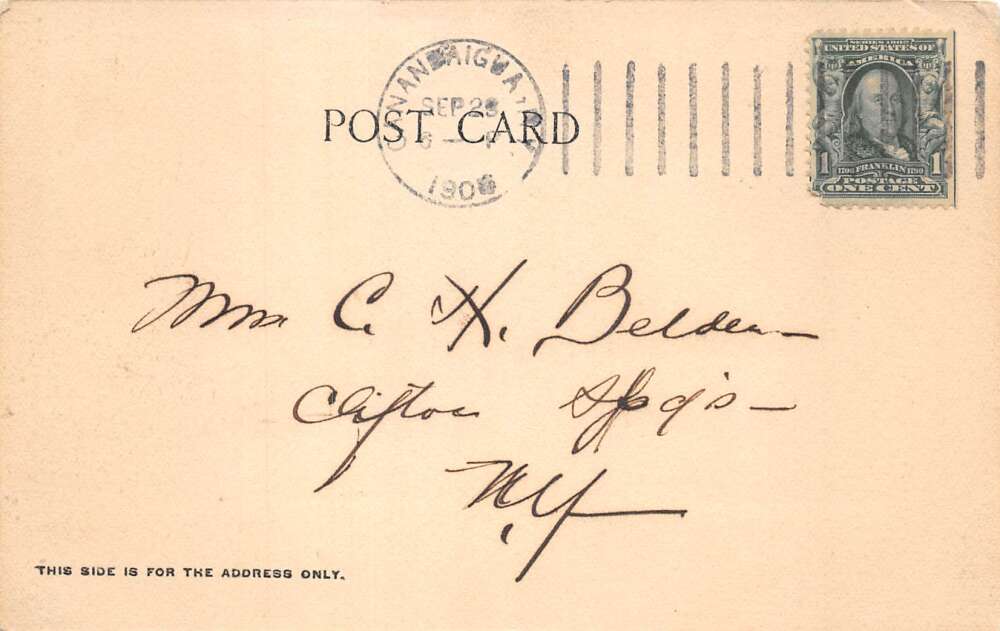 SERIES 1902
UNITED STATES OF
AMERICA
CANANDAIGUA, N.Y.
SEP 28
6 - P
POST CARD
1 1706 FRANKLIN 1790 1
POSTAGE
ONE CENT
Mrs C. H. Belden
Clifton Spg's
N.Y.
THIS SIDE IS FOR THE ADDRESS ONLY.